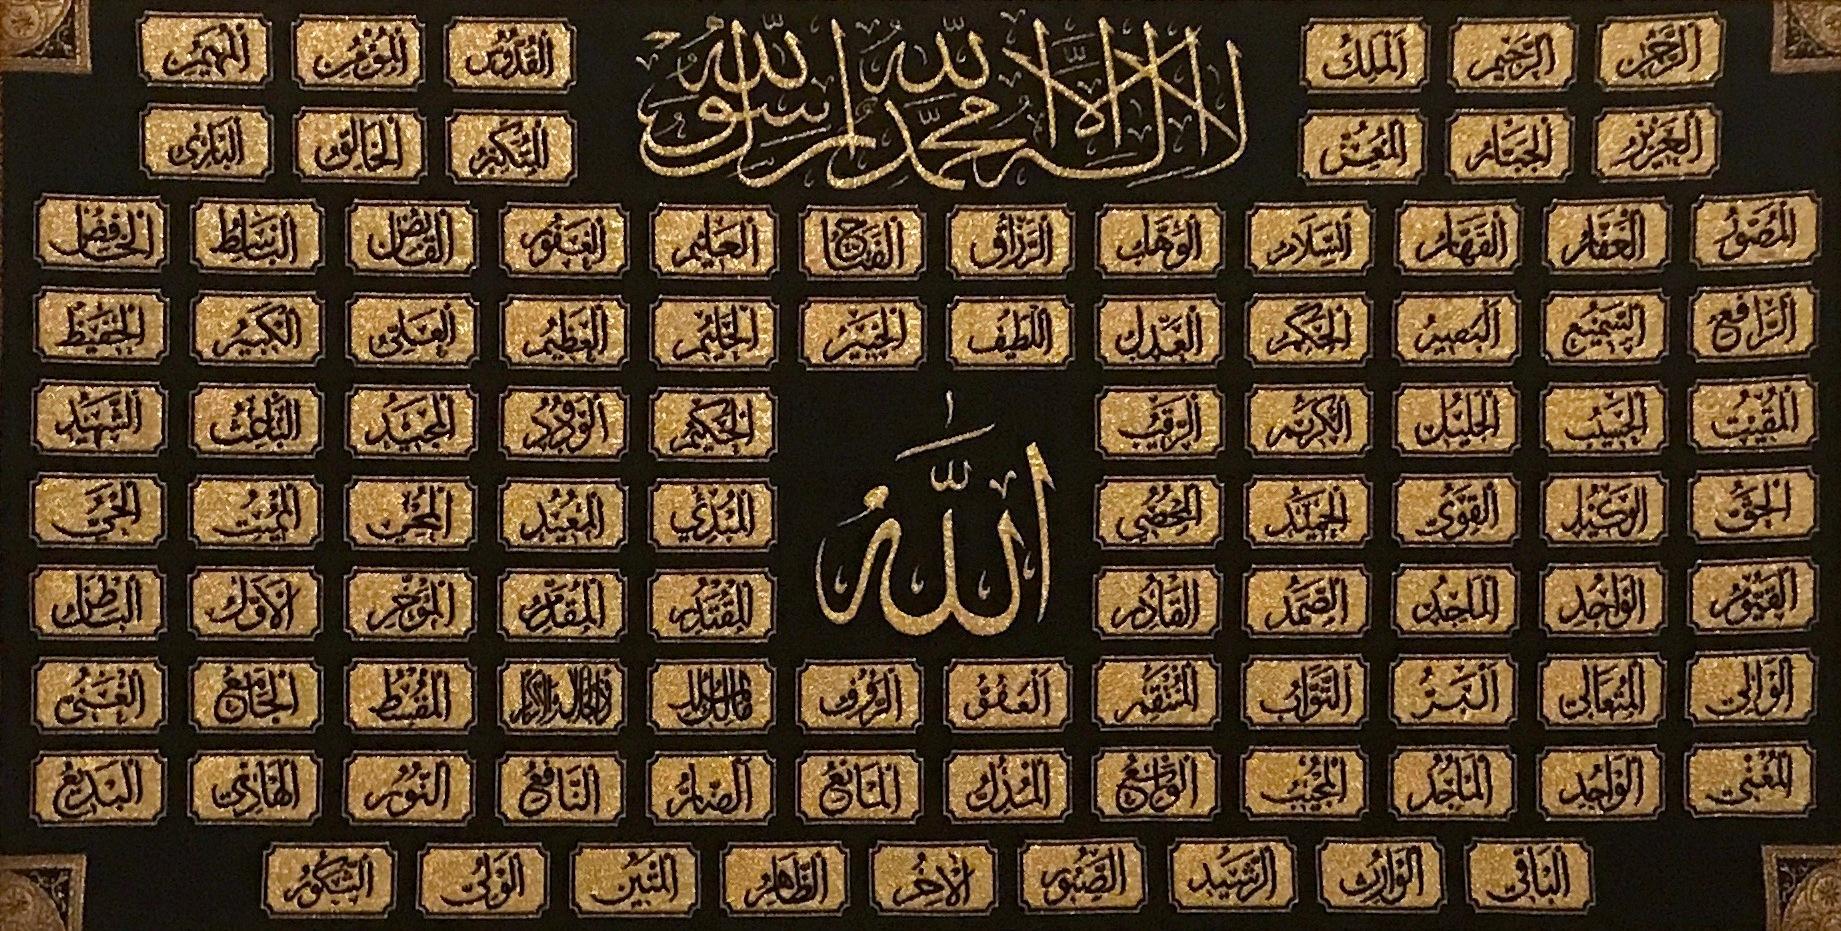 لا اله الا الله محمد رسول الله
الرحمن الرحيم الملك القدوس المؤمن المهيمن
العزيز الجبار المعز المتكبر الخالق البارئ
المصور الغفار القهار السلام الوهاب الرزاق الفتاح العليم الغفور القابض الباسط الخافض
الرافع السميع البصير الحكم العدل اللطيف الخبير الحليم العظيم العلي الكبير الحفيظ
المقيت الحسيب الجليل الكريم الرقيب الحكيم الودود المجيد الباعث الشهيد
الله
الحق الوكيل القوي الحميد المحصي المبدئ المعيد المحيي المميت الحي
القيوم الواجد الماجد الصمد القادر المقتدر المقدم المؤخر الأول الباطن
الوالي المتعالي البر التواب المنتقم العفو الرؤف مالك الملك ذو الجلال والاكرام المقسط الجامع الغني
المغني الواحد الماجد المجيب الواسع المذل المانع الضار النافع النور الهادي البديع
الباقي الوارث الرشيد الصبور الآخر الظاهر المتين الولي الشكور